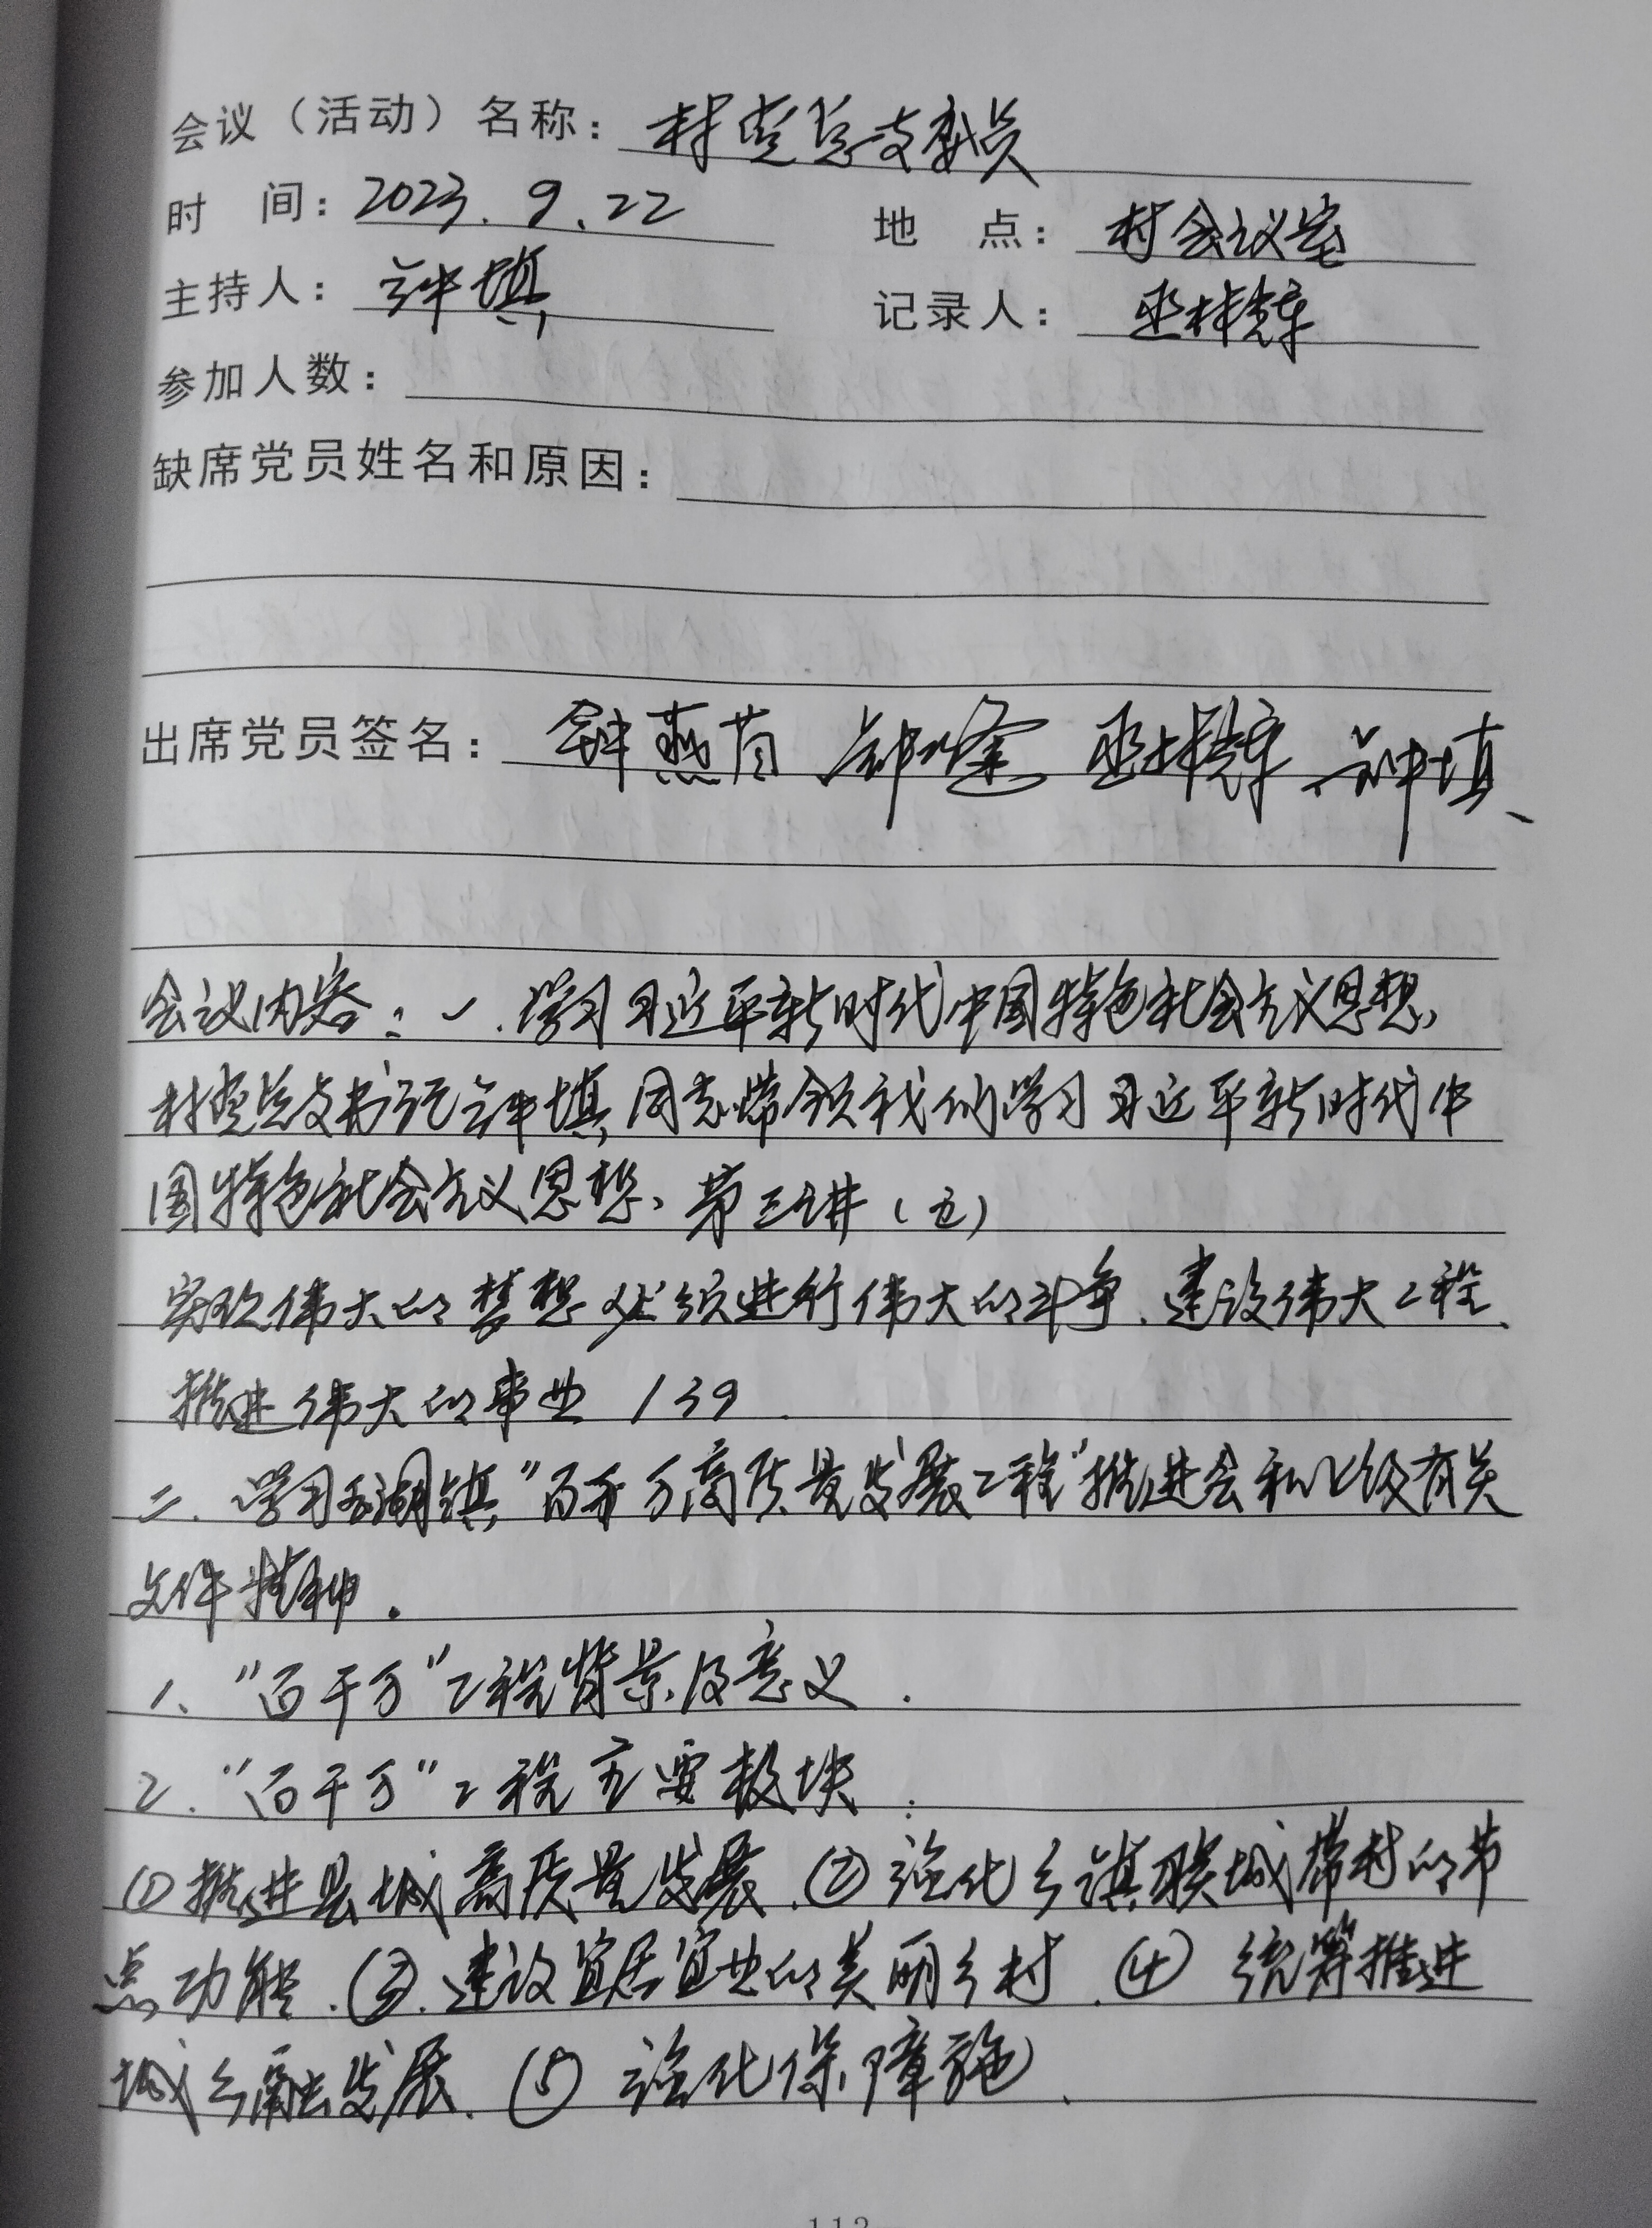 会议（活动）名称：村党总支委员
时 间：2023.9.22 地 点：村会议室
主持人： 记录人：巫林辉
参加人数：
缺席党员姓名和原因：
出席党员签名：钟燕 巫林辉
会议内容：一.学习习近平新时代中国特色社会主义思想，
村党总支书记 同志带领我们学习习近平新时代中
国特色社会主义思想、第三讲（五）
实现伟大的梦想必须进行伟大的斗争、建设伟大工程、
推进伟大的事业139.
二.学习 湖镇"百千万高质量发展工程"推进会和上级有关
文件精神.
1、"百千万"工程背景及意义.
2."百千万"工程主要板块:
①推进县城高质量发展.②强化乡镇联城带村的节
点功能.③.建设宜居宜业的美丽乡村.④统筹推进
城乡融合发展.⑤强化保障施、
112